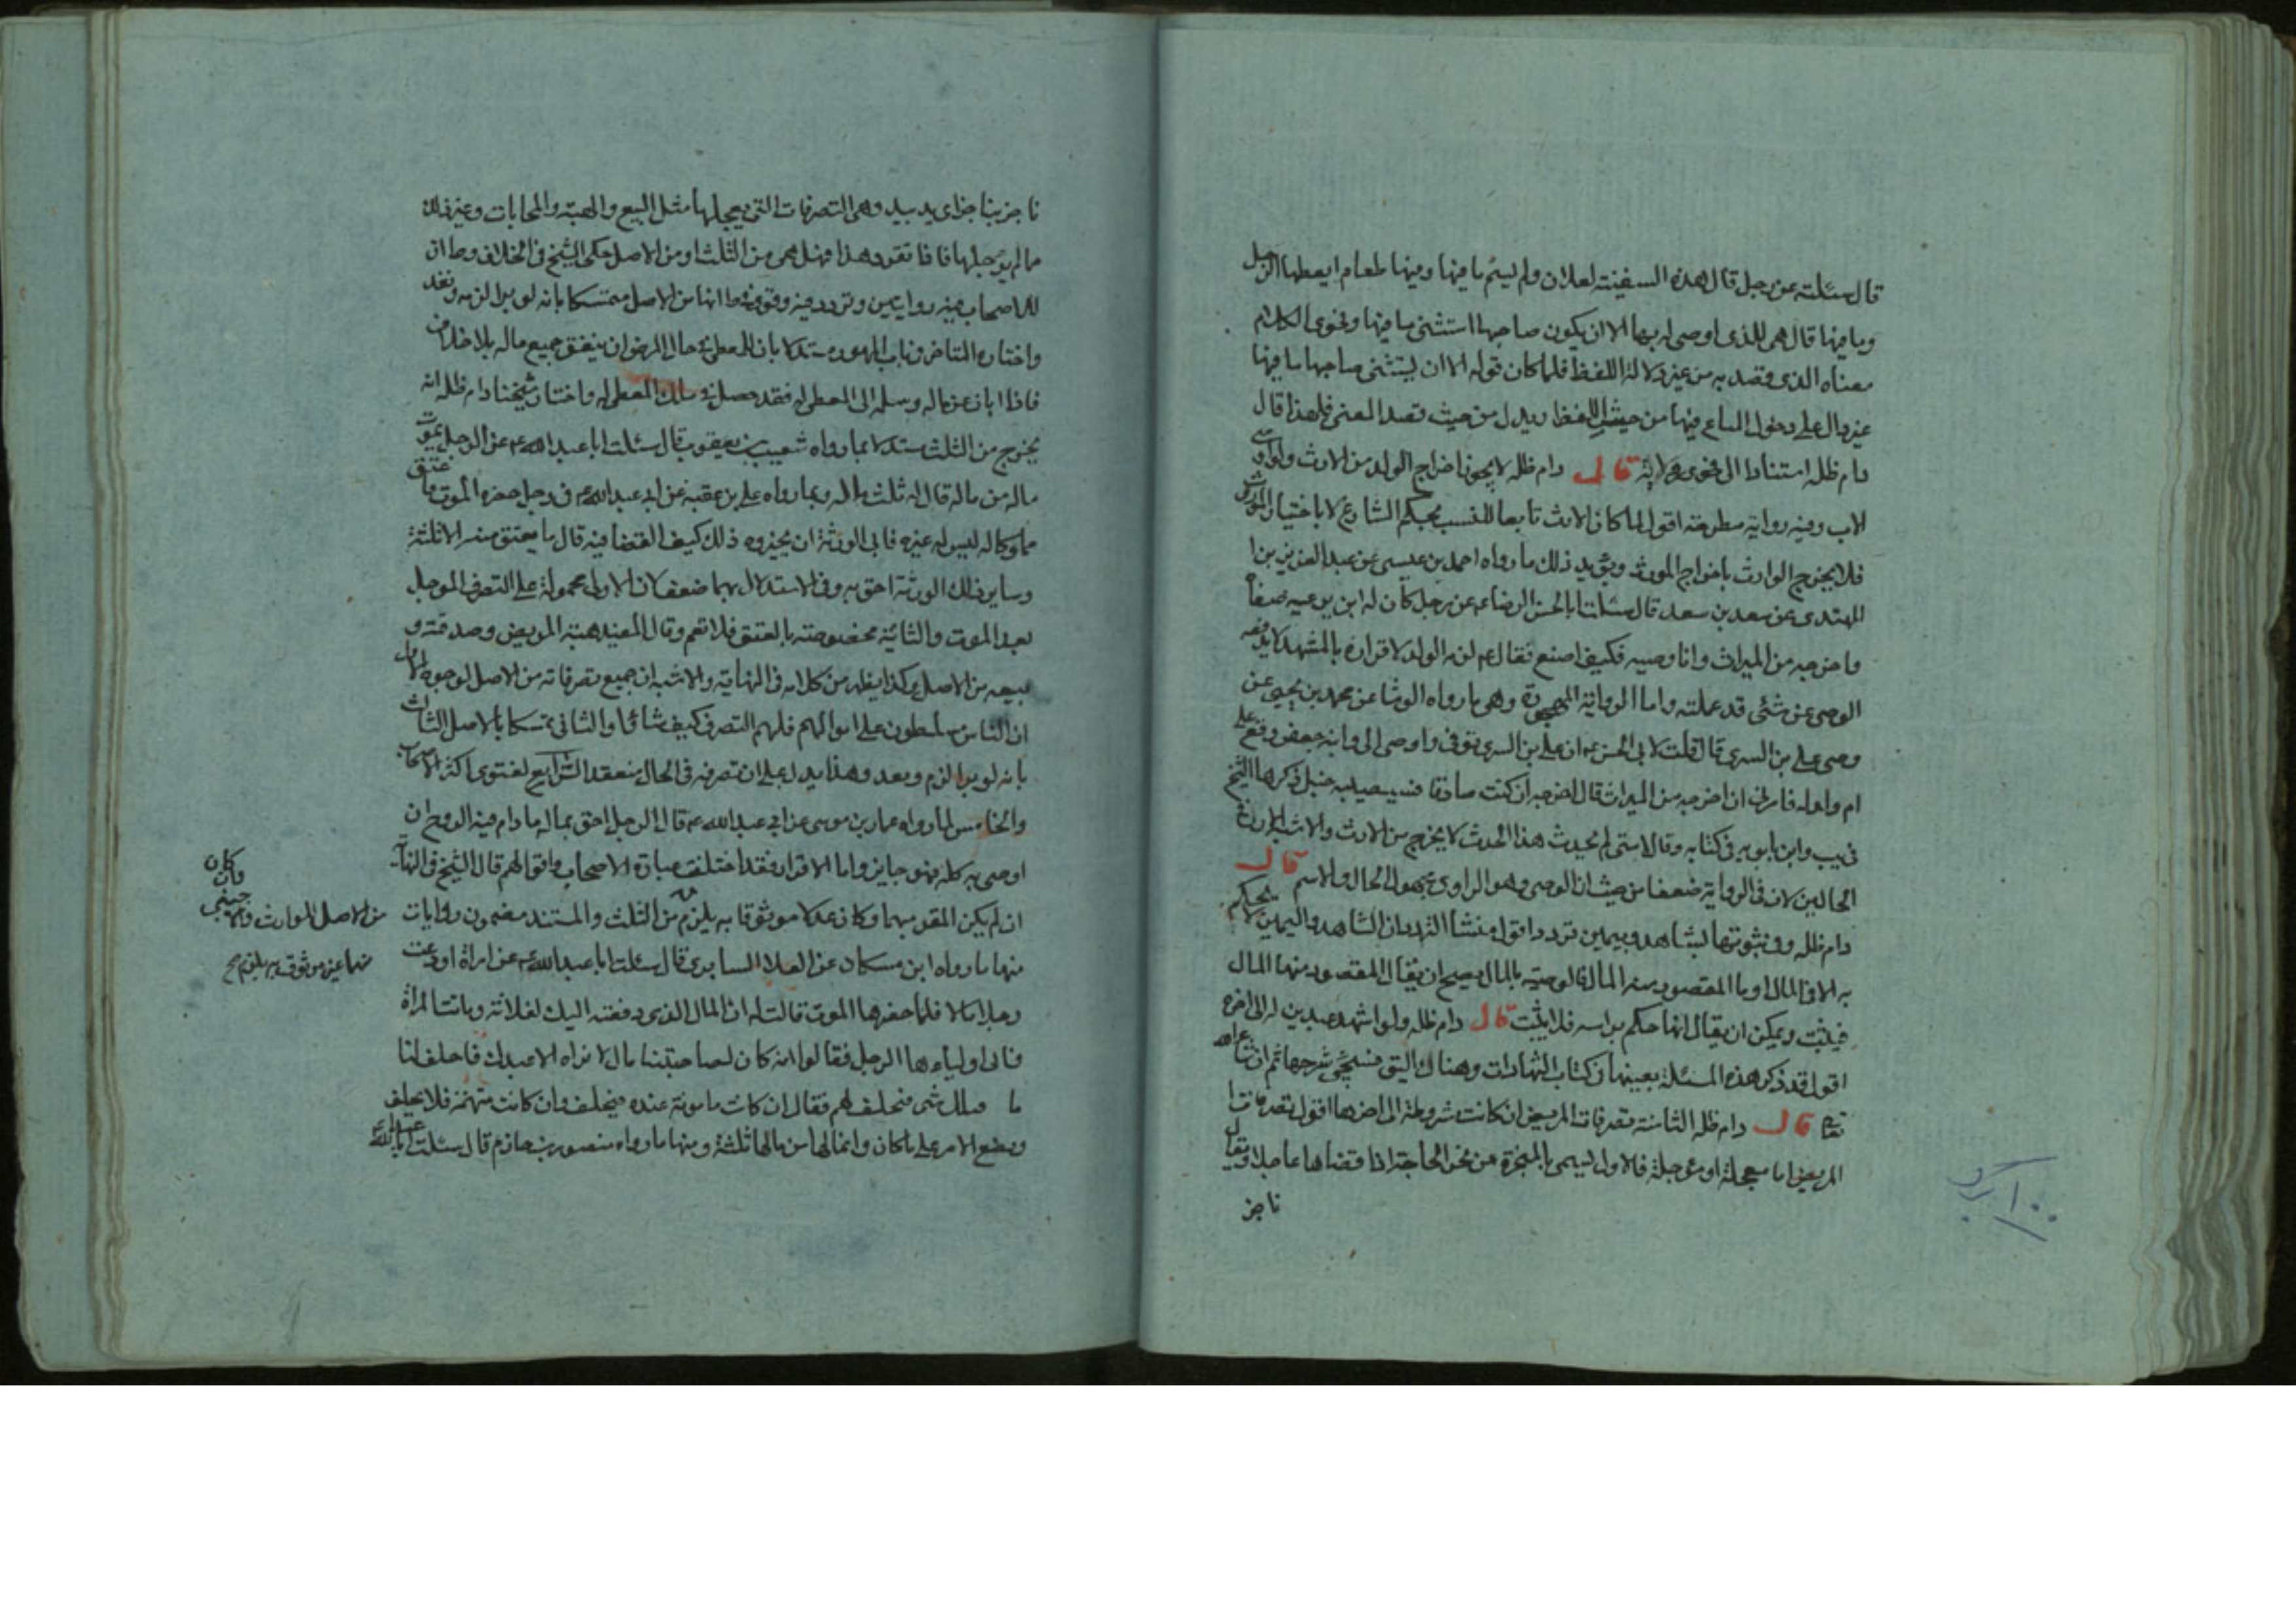 قال سئلته عن رجل قال هذه السفينة لفلان ولم يسم ما فيها وفيها طعام ايعطها الرجل
وما فيها قال هى للذى اوصى له بها الا ان يكون صاحبها استثنى ما فيها وفحوى الكلام
معناه الذى قصد به من غير دلالة اللفظ فلما كان قوله الا ان يستثنى صاحبها ما فيها
غير دال على دخول المتاع فيها من حيث اللفظ بل يدل من حيث قصد المعنى فلهذا قال
دام ظله استنادا الى فحوى رواية قال دام ظله لا يجوز اخراج الولد من الارث ولو اوصى
الاب وفيه رواية مطرحة اقول لما كان الارث تابعا للنسب بحكم الشارع لا باختيار المورث
فلا يخرج الوارث باخراج المورث ويؤيد ذلك ما رواه احمد بن عيسى عن عبد العزيز بن ا
المهتدى عن سعد بن سعد قال سئلت ابا الحسن الرضا ع عن رجل كان له ابن يدعيه فنفاه
واخرجه من الميراث وانا وصيه فكيف اصنع فقال ع لزمه الولد لاقراره بالمشهد لا يدفعه
الوصى عن شئى قد علمته واما الرواية المهجورة وهى ما رواه الوشا عن محمد بن يحيى عن
وصى على بن السرى قال قلت لابى الحسن ع ان على بن السرى توفى واوصى الى وابنه جعفر وقع على
ام ولد له فامرنى ان اخرجه من الميراث فقال اخرجه ان كنت صادقا فسيصيبه خبل ذكرها الشيخ
فى يب وابن بابويه فى كتابه وقال متى لم يحدث هذا الحدث لا يخرج من الارث والاشبه الارث فى
الحالين لان فى الرواية ضعفا من حيث ان الوصى وهو الراوى مجهول الحال والاسم قال
دام ظله وفى ثبوتها بشاهد ويمين تردد اقول منشأ التردد ان الشاهد واليمين لا يحكم
به الا فى المال او ما المقصود منه المال فالوصية بالمال يصح ان يقال المقصود منها المال
فيثبت ويمكن ان يقال انها حكم براسه فلا يثبت قال دام ظله ولو اشهد عبدين له الى اخره
اقول قد ذكر هذه المسئلة بعينها فى كتاب الشهادات وهناك اليق فسيجئى شرحها ثم ان شاء الله
تعالى قال دام ظله الثامنة تصرفات المريض ان كانت مشروطة الى اخرها اقول تصرفات ا
المريض اما معجلة او مؤجلة فالاول يسمى بالمنجزة من نجز الحاجة اذا قضاها عاجلا ويقال
ناجز
ناجز بناجز اى يد بيد وهى التصرفات التى يعجلها مثل البيع والهبة والمحابات وغير ذلك
ما لم يؤجلها فاذا تقرر هذا فهل هى من الثلث او من الاصل حكى الشيخ فى الخلاف وط ان
للاصحاب فيه روايتين وتردد فيه وقوى فى ط انها من الاصل متمسكا بانه لو برا لزمه ونفذ
واختاره القاضى فى باب المهور مستدلا بان للمعطى فى حال المرض ان ينفق جميع ماله بلا خلاف
فاذا ابان عن ماله وسلمه الى المعطى له فقد حصل فى ملك المعطى له واختار شيخنا دام ظله انه
يخرج من الثلث مستدلا بما رواه شعيب بن يعقوب قال سئلت ابا عبد الله ع عن الرجل يموت ما له
من ماله قال له ثلث ماله وبما رواه على بن عقبة عن ابى عبد الله ع فى رجل حضره الموت فاعتق
مملوكا له ليس له غيره فابى الورثة ان يجيزوه ذلك كيف القضا فيه قال ما يعتق منه الا ثلثه
وساير ذلك الورثة احق به وفى الاستدلال بهما ضعف لان الاولى محمولة على التصرف المؤجل
بعد الموت والثانية مخصوصة بالعتق فلا تعم وقال المفيد هبة المريض وصدقته و
بيعه من الاصل وكذا يظهر من كلامه فى النهاية والاشبه ان جميع تصرفاته من الاصل لوجوه الاول
ان الناس مسلطون على اموالهم فلهم التصرف كيف شاؤا والثانى تمسكا بالاصل الثالث
بانه لو برا لزم وبعد وهذا يدل على ان تصرفه فى الحال منعقد الرابع لفتوى اكثر الاصحاب
والخامس لما رواه عمار بن موسى عن ابى عبد الله ع قال الرجل احق بماله ما دام فيه الروح ان
اوصى به كله فهو جايز واما الاقرار فقد اختلفت عبارة الاصحاب واقوالهم قال الشيخ فى النهاية
ان لم يكن المقر متهما وكان عدلا موثوقا به يلزم من الثلث والمستند مضمون روايات
منها ما رواه ابن مسكان عن العلا السابرى قال سئلت ابا عبد الله ع عن امراة اودعت
رجلا مالا فلما حضرها الموت قالت له ان المال الذى دفعته اليك لفلانة وماتت المراة
فاتى اولياءها الرجل فقالوا انه كان لصاحبتنا مال لا نراه الا عندك فاحلف لنا
ما قبلك شى فنحلف لهم فقال ان كانت مامونة عنده فيحلف وان كانت متهمة فلا يحلف
ويضع الامر على ما كان وانما لها من مالها ثلثه ومنها ما رواه منصور بن حازم قال سئلت ابا عبد الله ع
من الاصل للوارث والاجنبى وان كان
متهما غير موثوق به يلزم صح